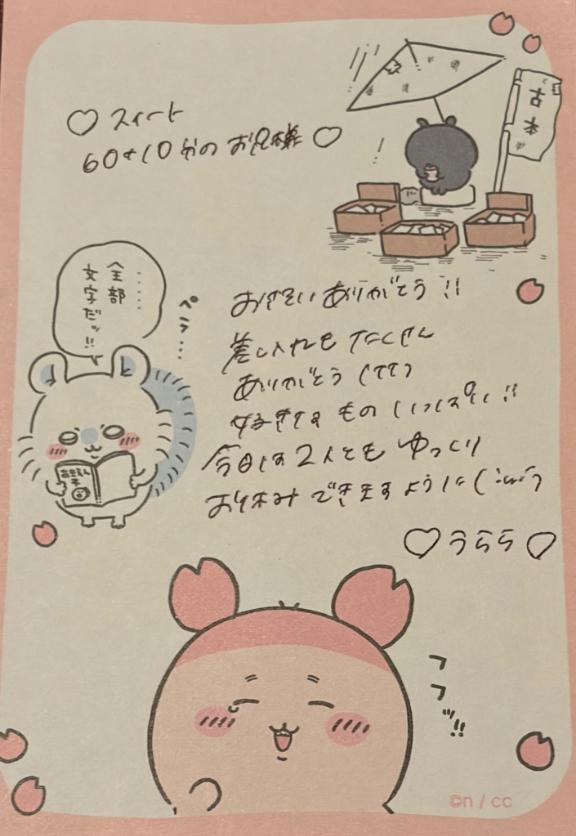 ♡ スイート
60+10分の お兄様 ♡
古本
……
全部
文字だッ!!
ペラ…
おさそい ありがとう!!
差し入れも たくさん
ありがとう
好きなもの いっぱい!!
今日は2人とも ゆっくり
お休み できますように
♡ うらら ♡
フフッ!!
©n / cc